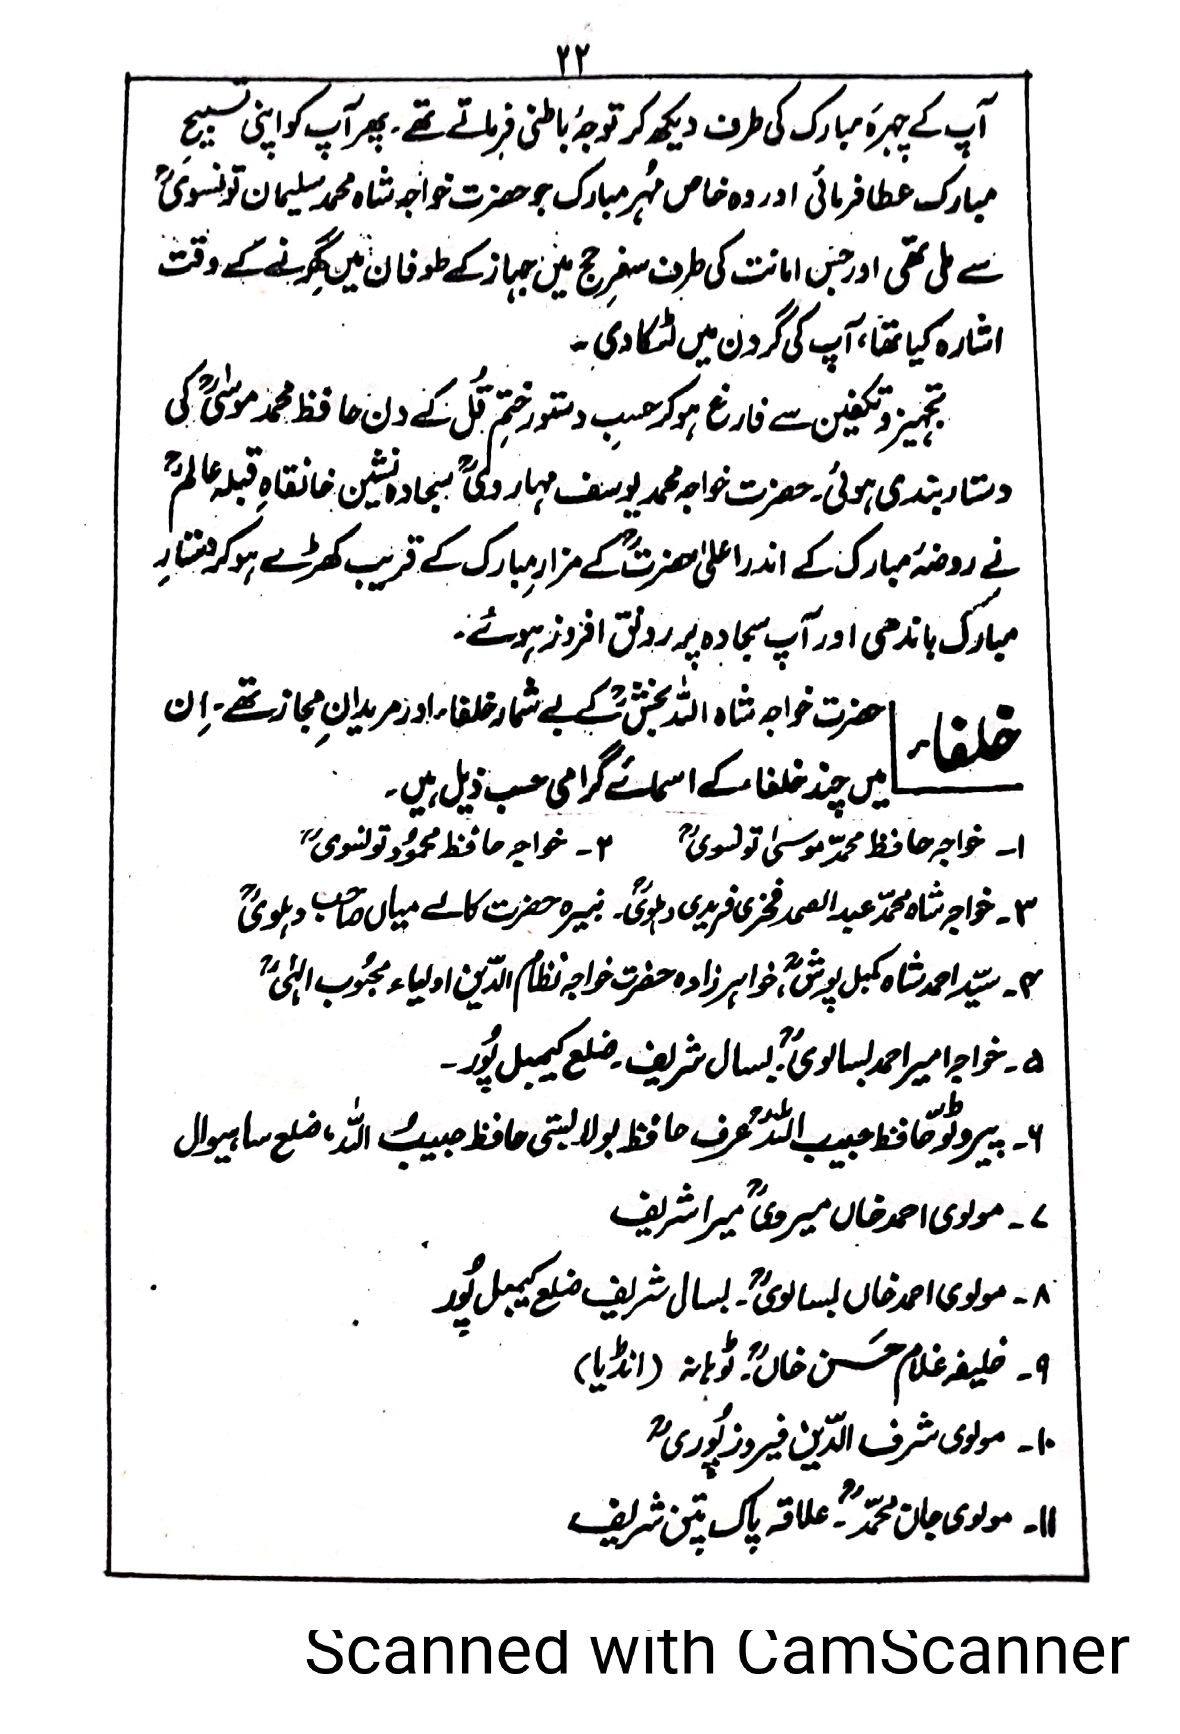 ۲۲
آپ کے چہرۂ مبارک کی طرف دیکھ کر توجۂ باطنی فرماتے تھے۔ پھر آپ کو اپنی تسبیحِ
مبارک عطا فرمائی اور وہ خاص مُہر مبارک جو حضرت خواجہ شاہ محمد سلیمان تونسویؒ
سے ملی تھی اور جس امانت کی طرف سفرِ حج میں جہاز کے طوفان میں گِھرنے کے وقت
اشارہ کیا تھا، آپ کی گردن میں لٹکا دی۔
تجہیز و تکفین سے فارغ ہو کر حسبِ دستور ختمِ قُل کے دن حافظ محمد موسیٰؒ کی
دستار بندی ہوئی۔ حضرت خواجہ محمد یوسف مہارویؒ سجادہ نشین خانقاہِ قبلہ عالمؒ
نے روضۂ مبارک کے اندر اعلیٰ حضرتؒ کے مزارِ مبارک کے قریب کھڑے ہو کر دستارِ
مبارک باندھی اور آپ سجادہ پر رونق افروز ہوئے۔
خلفاء
حضرت خواجہ شاہ اللہ بخشؒ کے بے شمار خلفاء اور مریدانِ مجاز تھے۔ اِن
میں چند خلفاء کے اسمائے گرامی حسب ذیل ہیں۔
۱۔ خواجہ حافظ محمدّ موسیٰ تونسویؒ ۲۔ خواجہ حافظ محمُود تونسویؒ
۳۔ خواجہ شاہ محمدّ عبد الصمد فخری فریدی دہلویؒ۔ نبیرہ حضرت کالے میاں صاحب دہلویؒ
۴۔ سیّد احمد شاہ کمبل پوشؒ، خواہر زادہ حضرت خواجہ نظام الدّین اولیاء محبُوب الٰہیؒ
۵۔ خواجہ امیر احمد بسالویؒ۔ بسال شریف۔ ضلع کیمبل پُور۔
۶۔ حافظ حبیب اللہؒ عرف حافظ بولا بستی حافظ حبیبُ اللہ، ضلع ساہیوال
۷۔ مولوی احمد خاں میرویؒ میرا شریف
۸۔ مولوی احمد خاں بسالویؒ۔ بسال شریف ضلع کیمبل پُور
۹۔ خلیفہ غلام حَسن خاںؒ۔ ٹوہانہ (انڈیا)
۱۰۔ مولوی شرف الدّین فیروز پُوریؒ
۱۱۔ مولوی جان محمدّؒ۔ علاقہ پاک پتن شریف
Scanned with CamScanner